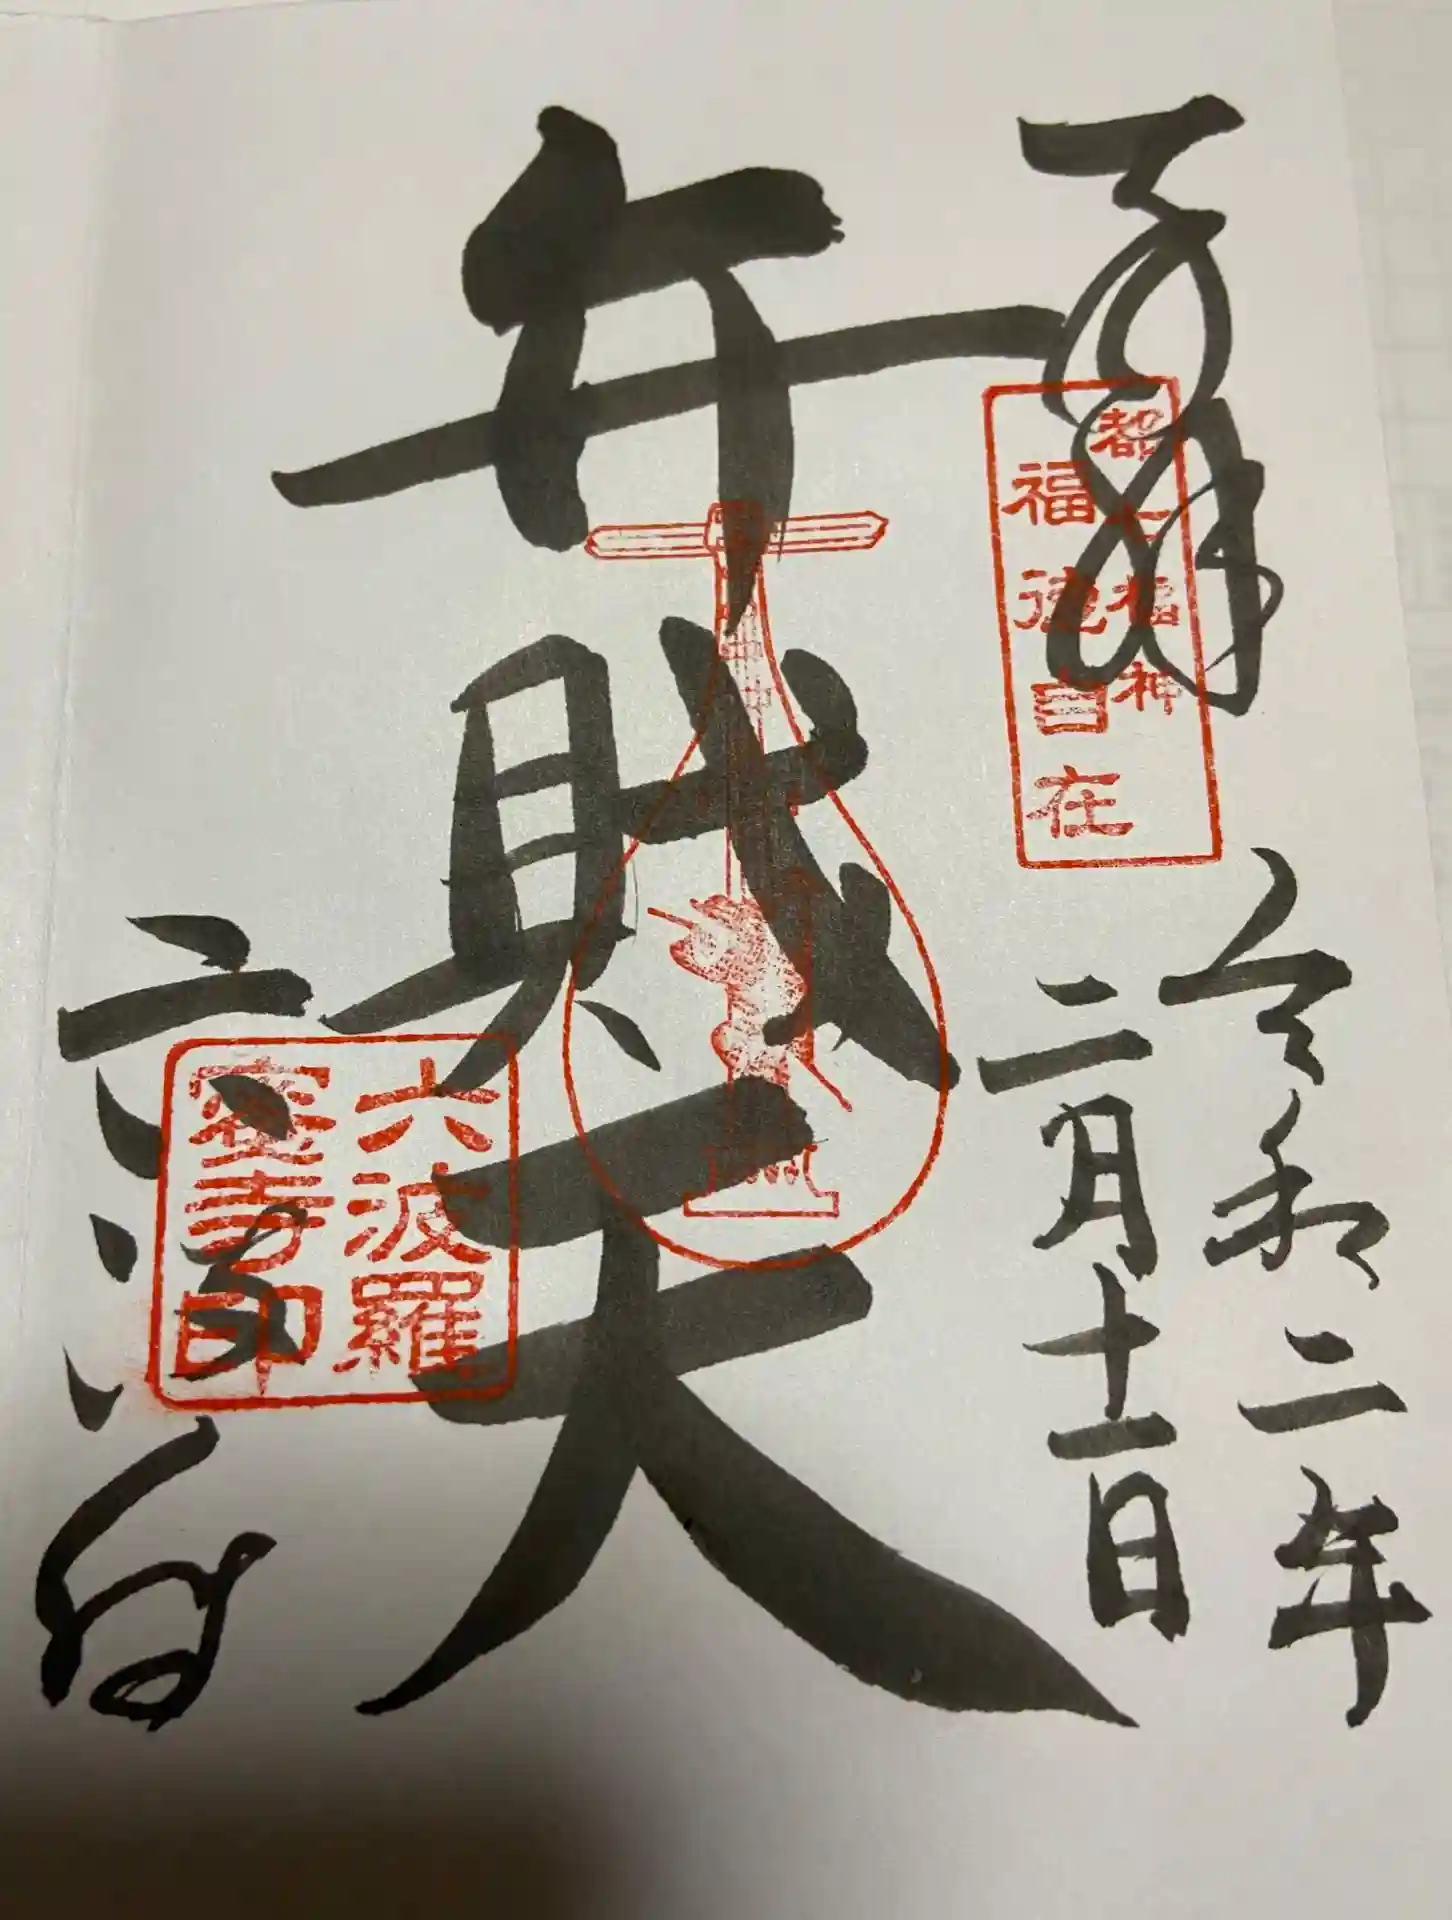 奉拝
都七福神
福徳自在
令和二年
二月十一日
弁財天
六波羅
蜜寺印
六波羅